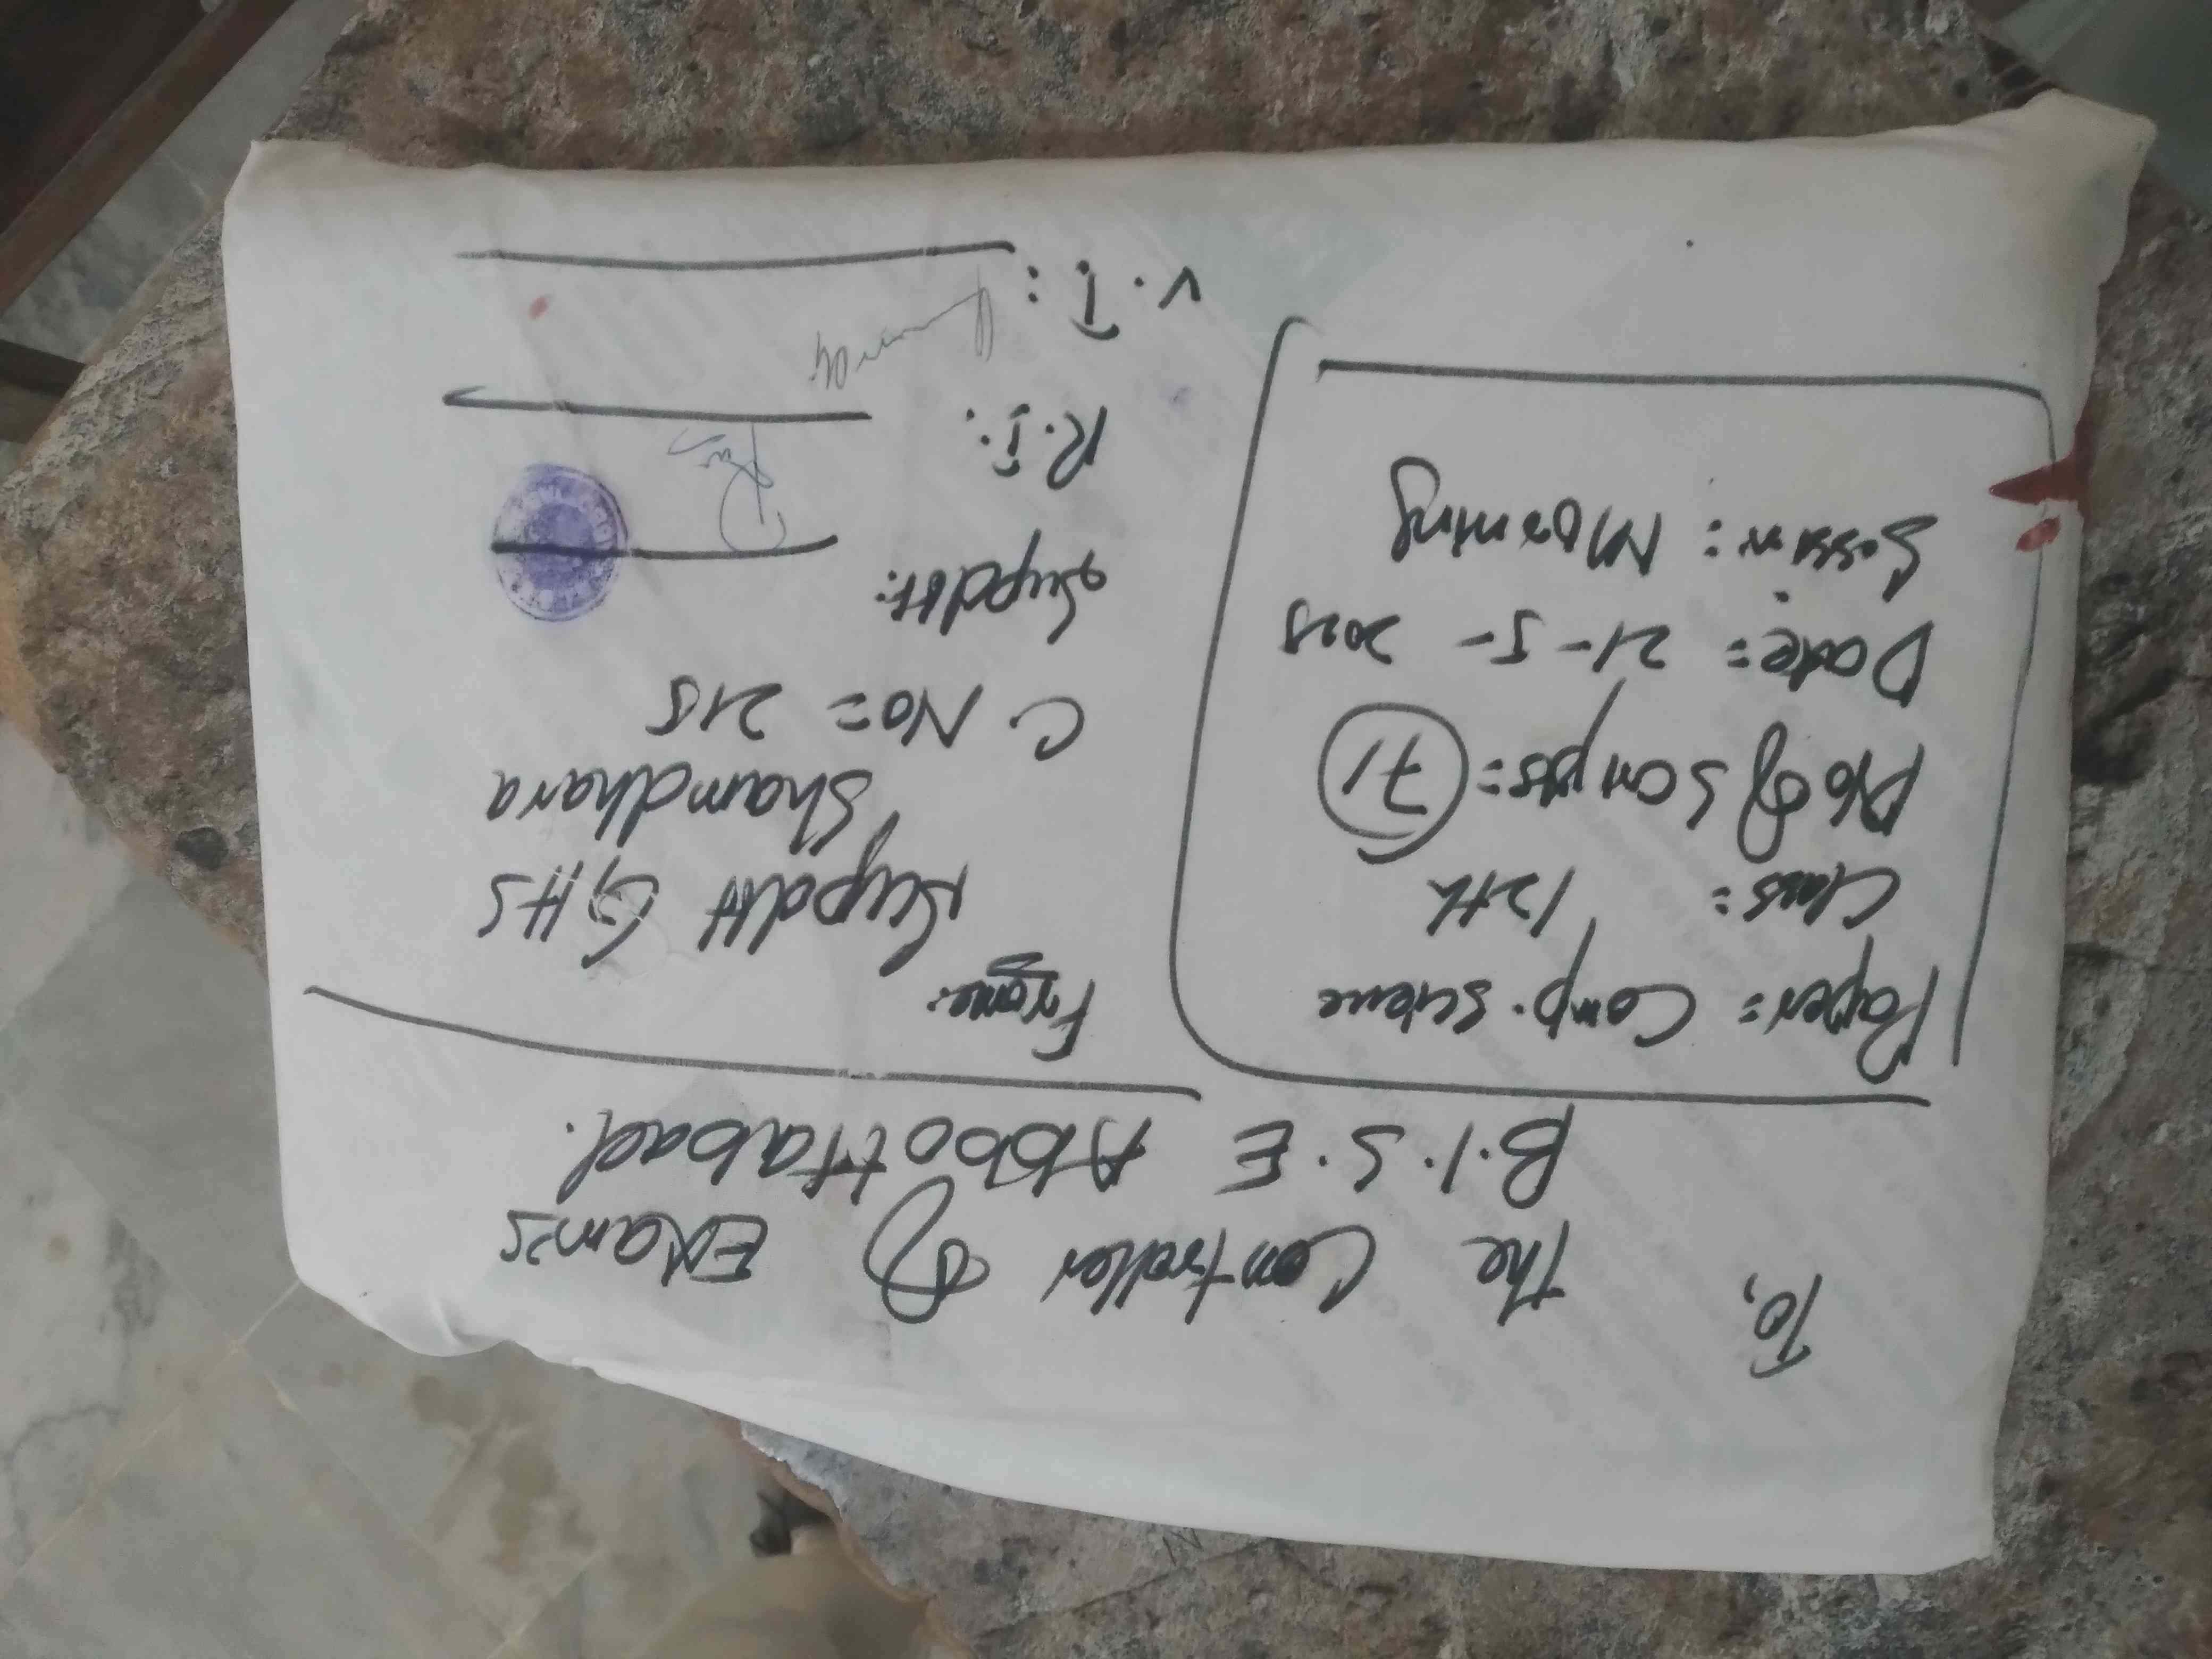 To,
The Controller Of Exams
B.I.S.E Abbottabad.
Paper = Comp. Science
Class = 12th
No Of Scripts = 71
Date = 21-5-2025
Session: Morning
From:
Supdtt GHS
Shamdhara
C. No = 215
Supdtt:
R.I:
V.I: